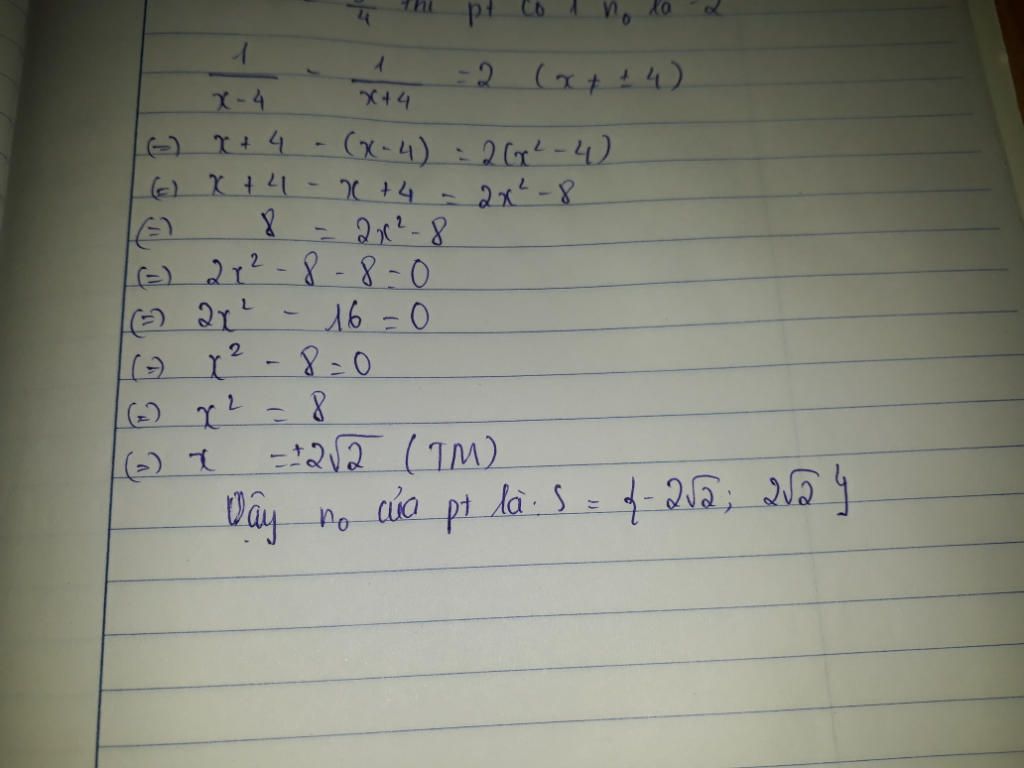 3/4 thì pt có 1 n₀ là -2
1/(x-4) - 1/(x+4) = 2 (x ≠ ± 4)
(=) x + 4 - (x - 4) = 2(x² - 4)
(=) x + 4 - x + 4 = 2x² - 8
(=) 8 = 2x² - 8
(=) 2x² - 8 - 8 = 0
(=) 2x² - 16 = 0
(=) x² - 8 = 0
(=) x² = 8
(=) x = ±2√2 (TM)
Vậy n₀ của pt là: S = {-2√2; 2√2}